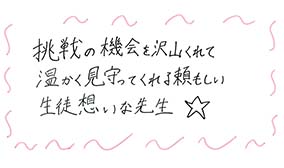 挑戦の機会を沢山くれて
温かく見守ってくれる頼もしい
生徒想いな先生 ☆